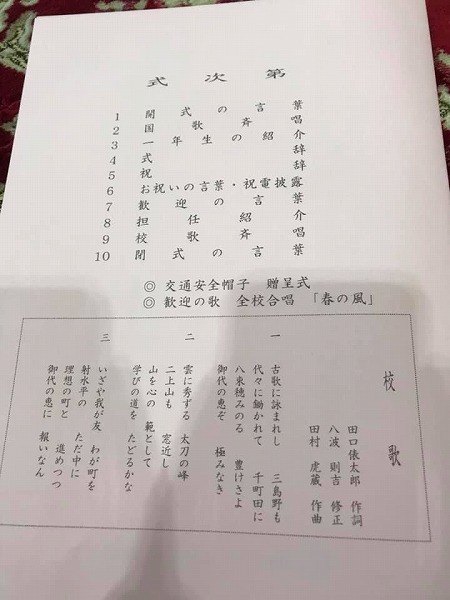 式次第
1 開式の言葉
2 国歌斉唱
3 一年生の紹介
4 式辞
5 祝辞
6 お祝いの言葉・祝電披露
7 歓迎の言葉
8 担任紹介
9 校歌斉唱
10 閉式の言葉
◎ 交通安全帽子 贈呈式
◎ 歓迎の歌 全校合唱 「春の風」
校歌
田口俵太郎 作詞
八波則吉 修正
田村虎蔵 作曲
一
古歌に詠まれし 三島野も
代々に鋤かれて 千町田に
八束穂みのる 豊けさよ
御代の恵ぞ 極みなき
二
雲に秀ずる 太刀の峰
二上山も 窓近し
山を心の 範として
学びの道を たどるかな
三
いざや我が友 わが町を
射水平の ただ中に
理想の町と 進めつつ
御代の恵に 報いなん